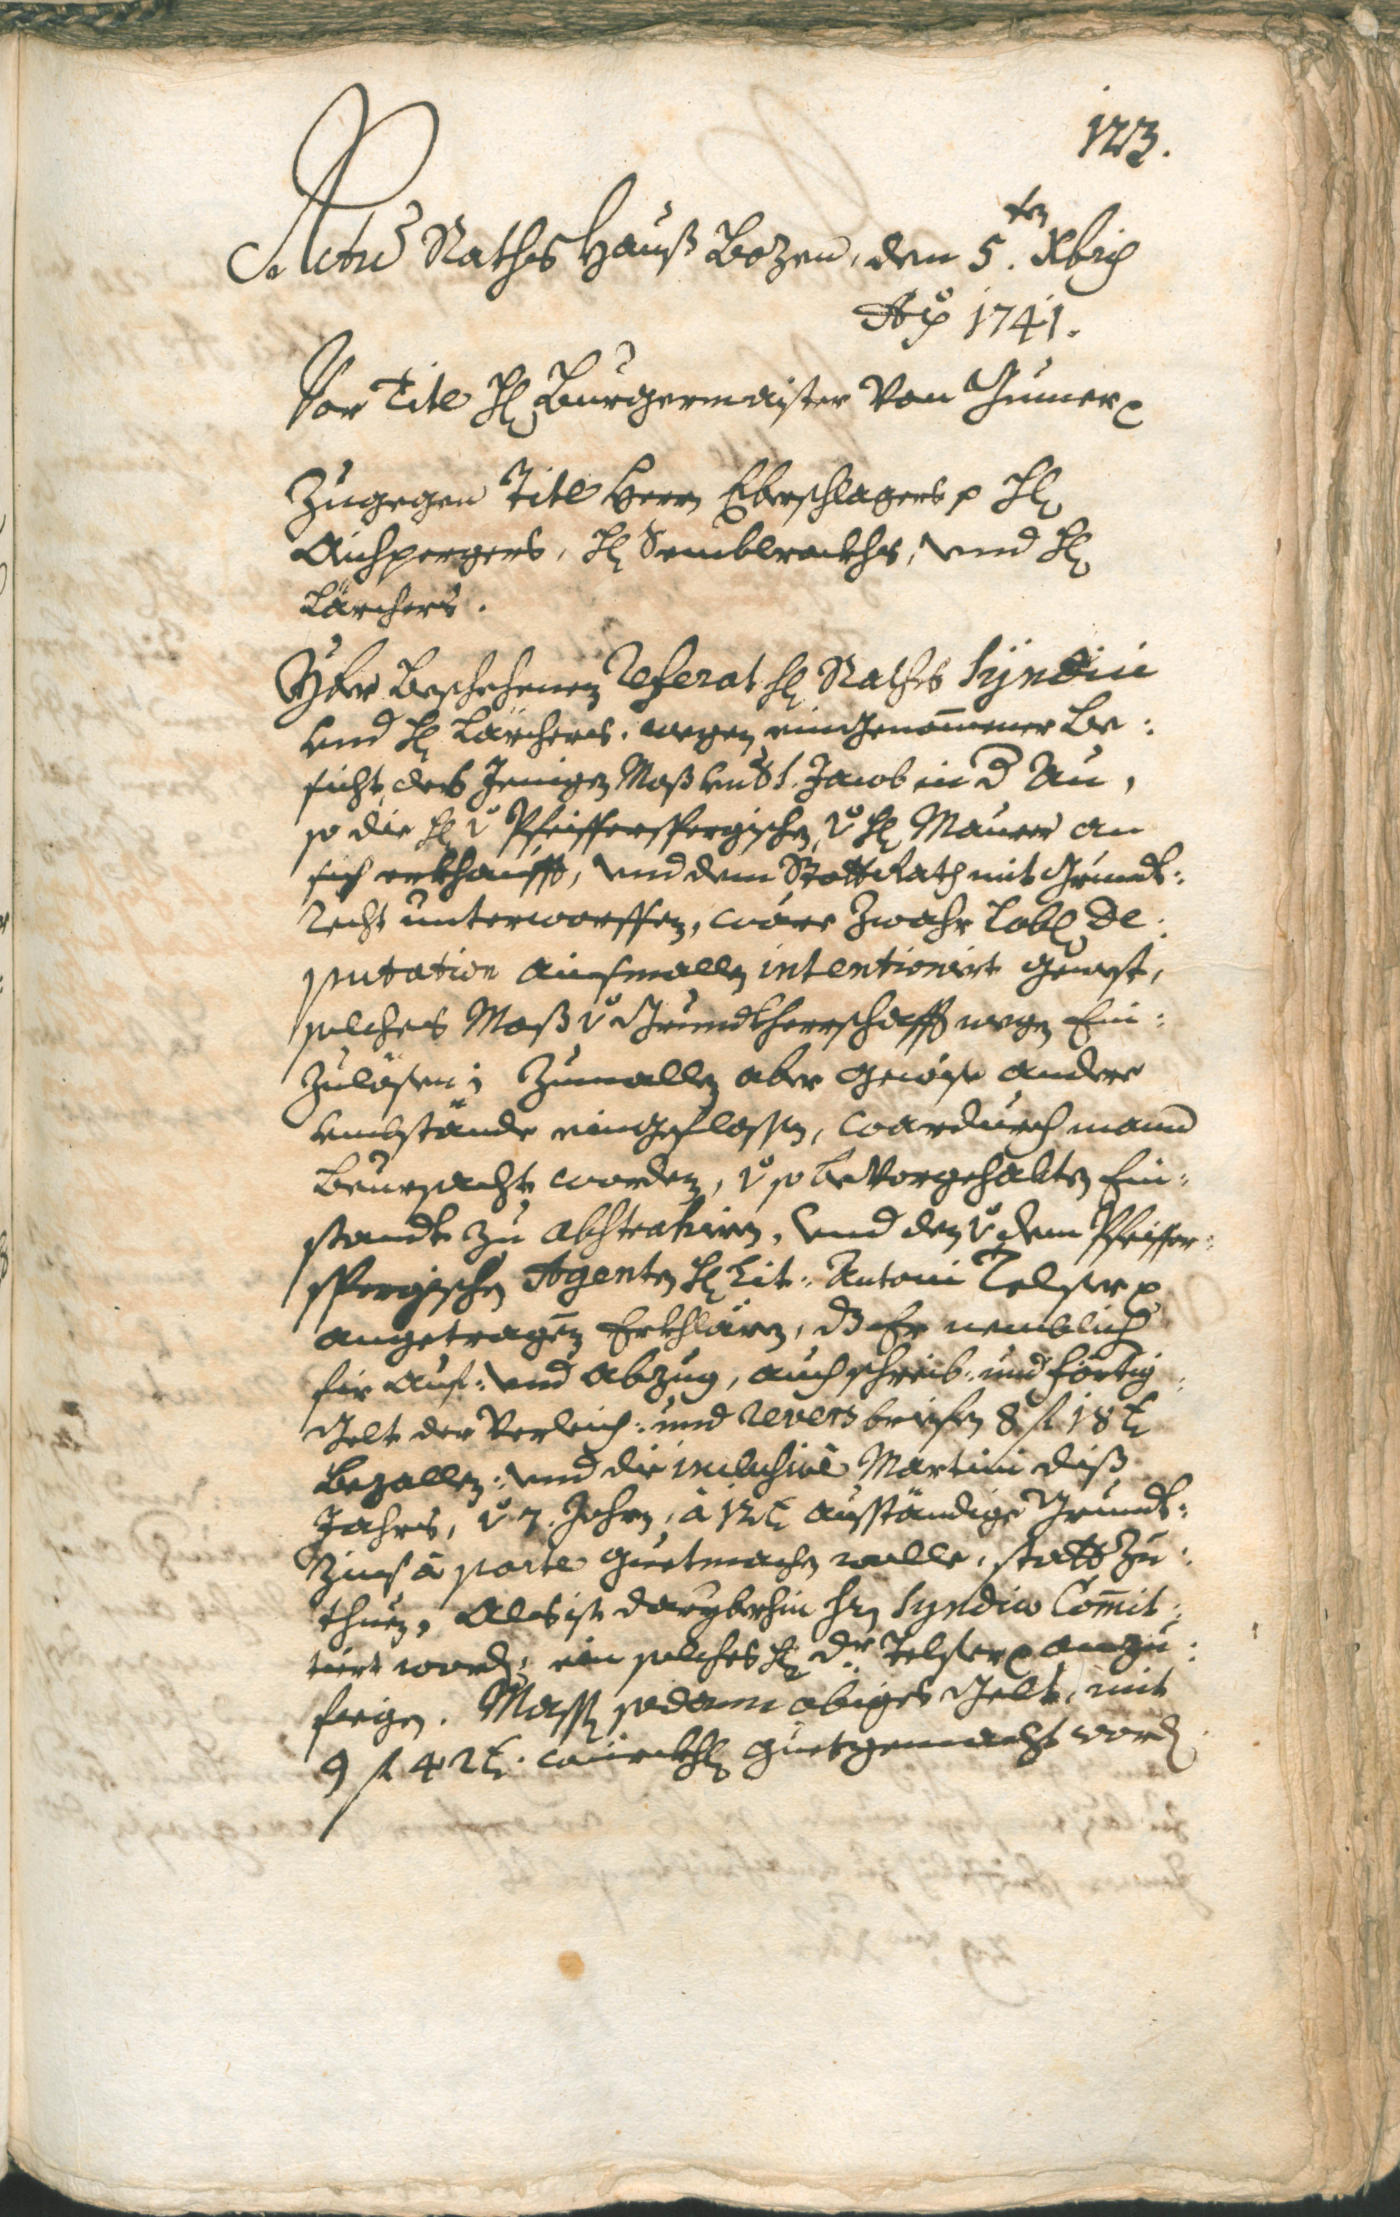 123.
Actum Rathshauß Bozen, den 5.ten Xbris
Ao 1741.
Vor Titl H: Burgermaister Von Gumer p
Zugegen Titl Herrn Eberschlagers p H:
Aichpergers, H: Semblrockhs, vnd H:
Lärchers.
Yber beschehenen Referat H: Raths Syndici
vnd H: Lärchers, wegen eingenommener be:
sicht des Jenigen Moß bey St. Jacob in d' Au,
so die H: v Pfeifferspergischen, v H: Maurer an
sich erkhaufft, vnd dem Statt Rath mit Grundt:
recht unterworffen, wäre zwahr Lobl: De:
putation ainsmallen intentioniert gewest,
solches Moß v Grundtherrschafft wegen Ein:
zulösen; Zumallen aber gewise andere
vmbstände eingeflossen, wardurch mann
beursacht worden, v so bevorgehalten Ein:
standt zu abstrahirn, vnd den v dem Pfeiffer:
spergischen Agenten H: Lit: Antoni Telser p
angetragnen Erkhlären, dz Er nemblich
fir Auf: vnd Abzug, auch schreib: undförtig:
Gelt der Verleich: und Revers briefen 8 f 18 x
bezallen: vnd die inclusive Martini diß
Jahrs, v 7. Jahrn, à 12 x ausständige Grundt:
Zins à parte guetmachen wolle, statt zu:
thuen, Als ist daryberhin Hrn Syndico Commit:
tiert word: ein solches H: Dr. Telser p anzu:
fiegen. Massen sodann obiges Gelt, mit
9 f 42 x. würckhl: guetgemacht word: